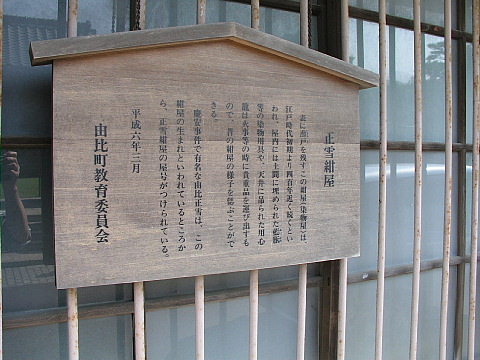 正雪紺屋
表に瀬戸を残すこの紺屋（染物屋）は、
江戸時代初期より四百年近く続くとい
われ、屋内には土間に埋められた藍瓶
等の染物用具や、天井に吊られた用心
籠は火事等の時に貴重品を運び出すも
ので、昔の紺屋の様子を偲ぶことがで
きる。
慶安事件で有名な由比正雪は、この
紺屋の生まれといわれているところか
ら、正雪紺屋の屋号がつけられている。
平成六年三月
由比町教育委員会